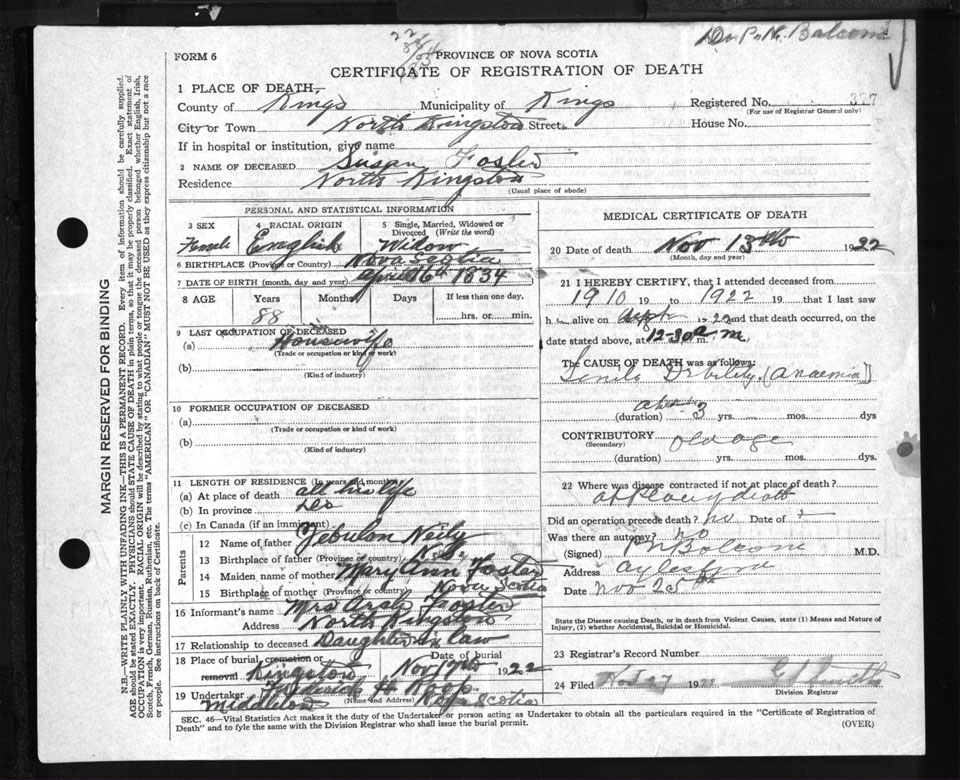 Dr. P. N. Balcome
FORM 6
PROVINCE OF NOVA SCOTIA
CERTIFICATE OF REGISTRATION OF DEATH
1 PLACE OF DEATH,
County of Kings Municipality of Kings Registered No. 327
(For use of Registrar General only)
City or Town North Kingston Street House No.
If in hospital or institution, give name
2 NAME OF DECEASED Susan Foster
Residence North Kingston
(Usual place of abode)
PERSONAL AND STATISTICAL INFORMATION
3 SEX 4 RACIAL ORIGIN 5 Single, Married, Widowed or Divorced (Write the word)
Female English Widow
6 BIRTHPLACE (Province or Country) Nova Scotia
7 DATE OF BIRTH (month, day and year) April 16th 1834
8 AGE Years Months Days If less than one day,
88 hrs. or min.
9 LAST OCCUPATION OF DECEASED
(a) Housewife
(Trade or occupation or kind of work)
(b)
(Kind of industry)
10 FORMER OCCUPATION OF DECEASED
(a)
(Trade or occupation or kind of work)
(b)
(Kind of industry)
11 LENGTH OF RESIDENCE (In years and months)
(a) At place of death all his life
(b) In province
(c) In Canada (if an immigrant)
Parents
12 Name of father Zebulon Neily
13 Birthplace of father (Province or country) N.S.
14 Maiden name of mother Mary Ann Foster
15 Birthplace of mother (Province or country) Nova Scotia
16 Informant's name Mrs Arch Foster
Address North Kingston
17 Relationship to deceased Daughter in law
18 Place of burial, cremation or removal Kingston Date of burial Nov 17th 1922
19 Undertaker H. Roop
(Name and Address)
Middleton Nova Scotia
MEDICAL CERTIFICATE OF DEATH
20 Date of death Nov 13th 1922
(Month, day and year)
21 I HEREBY CERTIFY, that I attended deceased from
1910 19 to 1922 19 that I last saw
h alive on Sept 1922 and that death occurred, on
date stated above, at 12-30 a. m.
The CAUSE OF DEATH was as follows:
Senile Debility, (Anaemia)
(duration) 3 yrs. mos. dys
CONTRIBUTORY old age
(Secondary)
(duration) yrs. mos. dys.
22 Where was disease contracted if not at place of death?
at place of death
Did an operation precede death? no Date of
Was there an autopsy? no
(Signed) P N Balcome M.D.
Address Aylesford
Date Nov 25th
State the Disease causing Death, or in death from Violent Causes, state (1) Means and Nature of
Injury, (2) whether Accidental, Suicidal or Homicidal.
23 Registrar's Record Number
24 Filed Nov 27 19 Smith
Division Registrar
SEC. 46—Vital Statistics Act makes it the duty of the Undertaker or person acting as Undertaker to obtain all the particulars required in the "Certificate of Registration of
Death" and to fyle the same with the Division Registrar who shall issue the burial permit. (OVER)
MARGIN RESERVED FOR BINDING
N.B.—WRITE PLAINLY WITH UNFADING INK—THIS IS A PERMANENT RECORD. Every item of information should be carefully supplied.
AGE should be stated EXACTLY. PHYSICIANS should STATE CAUSE OF DEATH in plain terms, so that it may be properly classified. Exact statement of
OCCUPATION is very important. RACIAL ORIGIN will be described by stating to what people or tongue the deceased person belonged whether English, Irish,
Scotch, French, German, Russian, Ruthenian, etc. The terms "AMERICAN" OR "CANADIAN" MUST NOT BE USED as they express citizenship but not a race
or people. See instructions on back of Certificate.